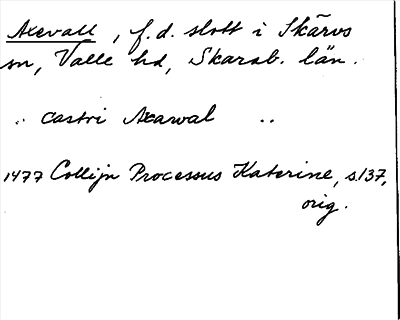 Axevall, f.d. slott i Skärvs
sn, Valle hd, Skarab. län.
.. castri Axawal ..
1477 Collijn Processus Katerine, s.137,
orig.